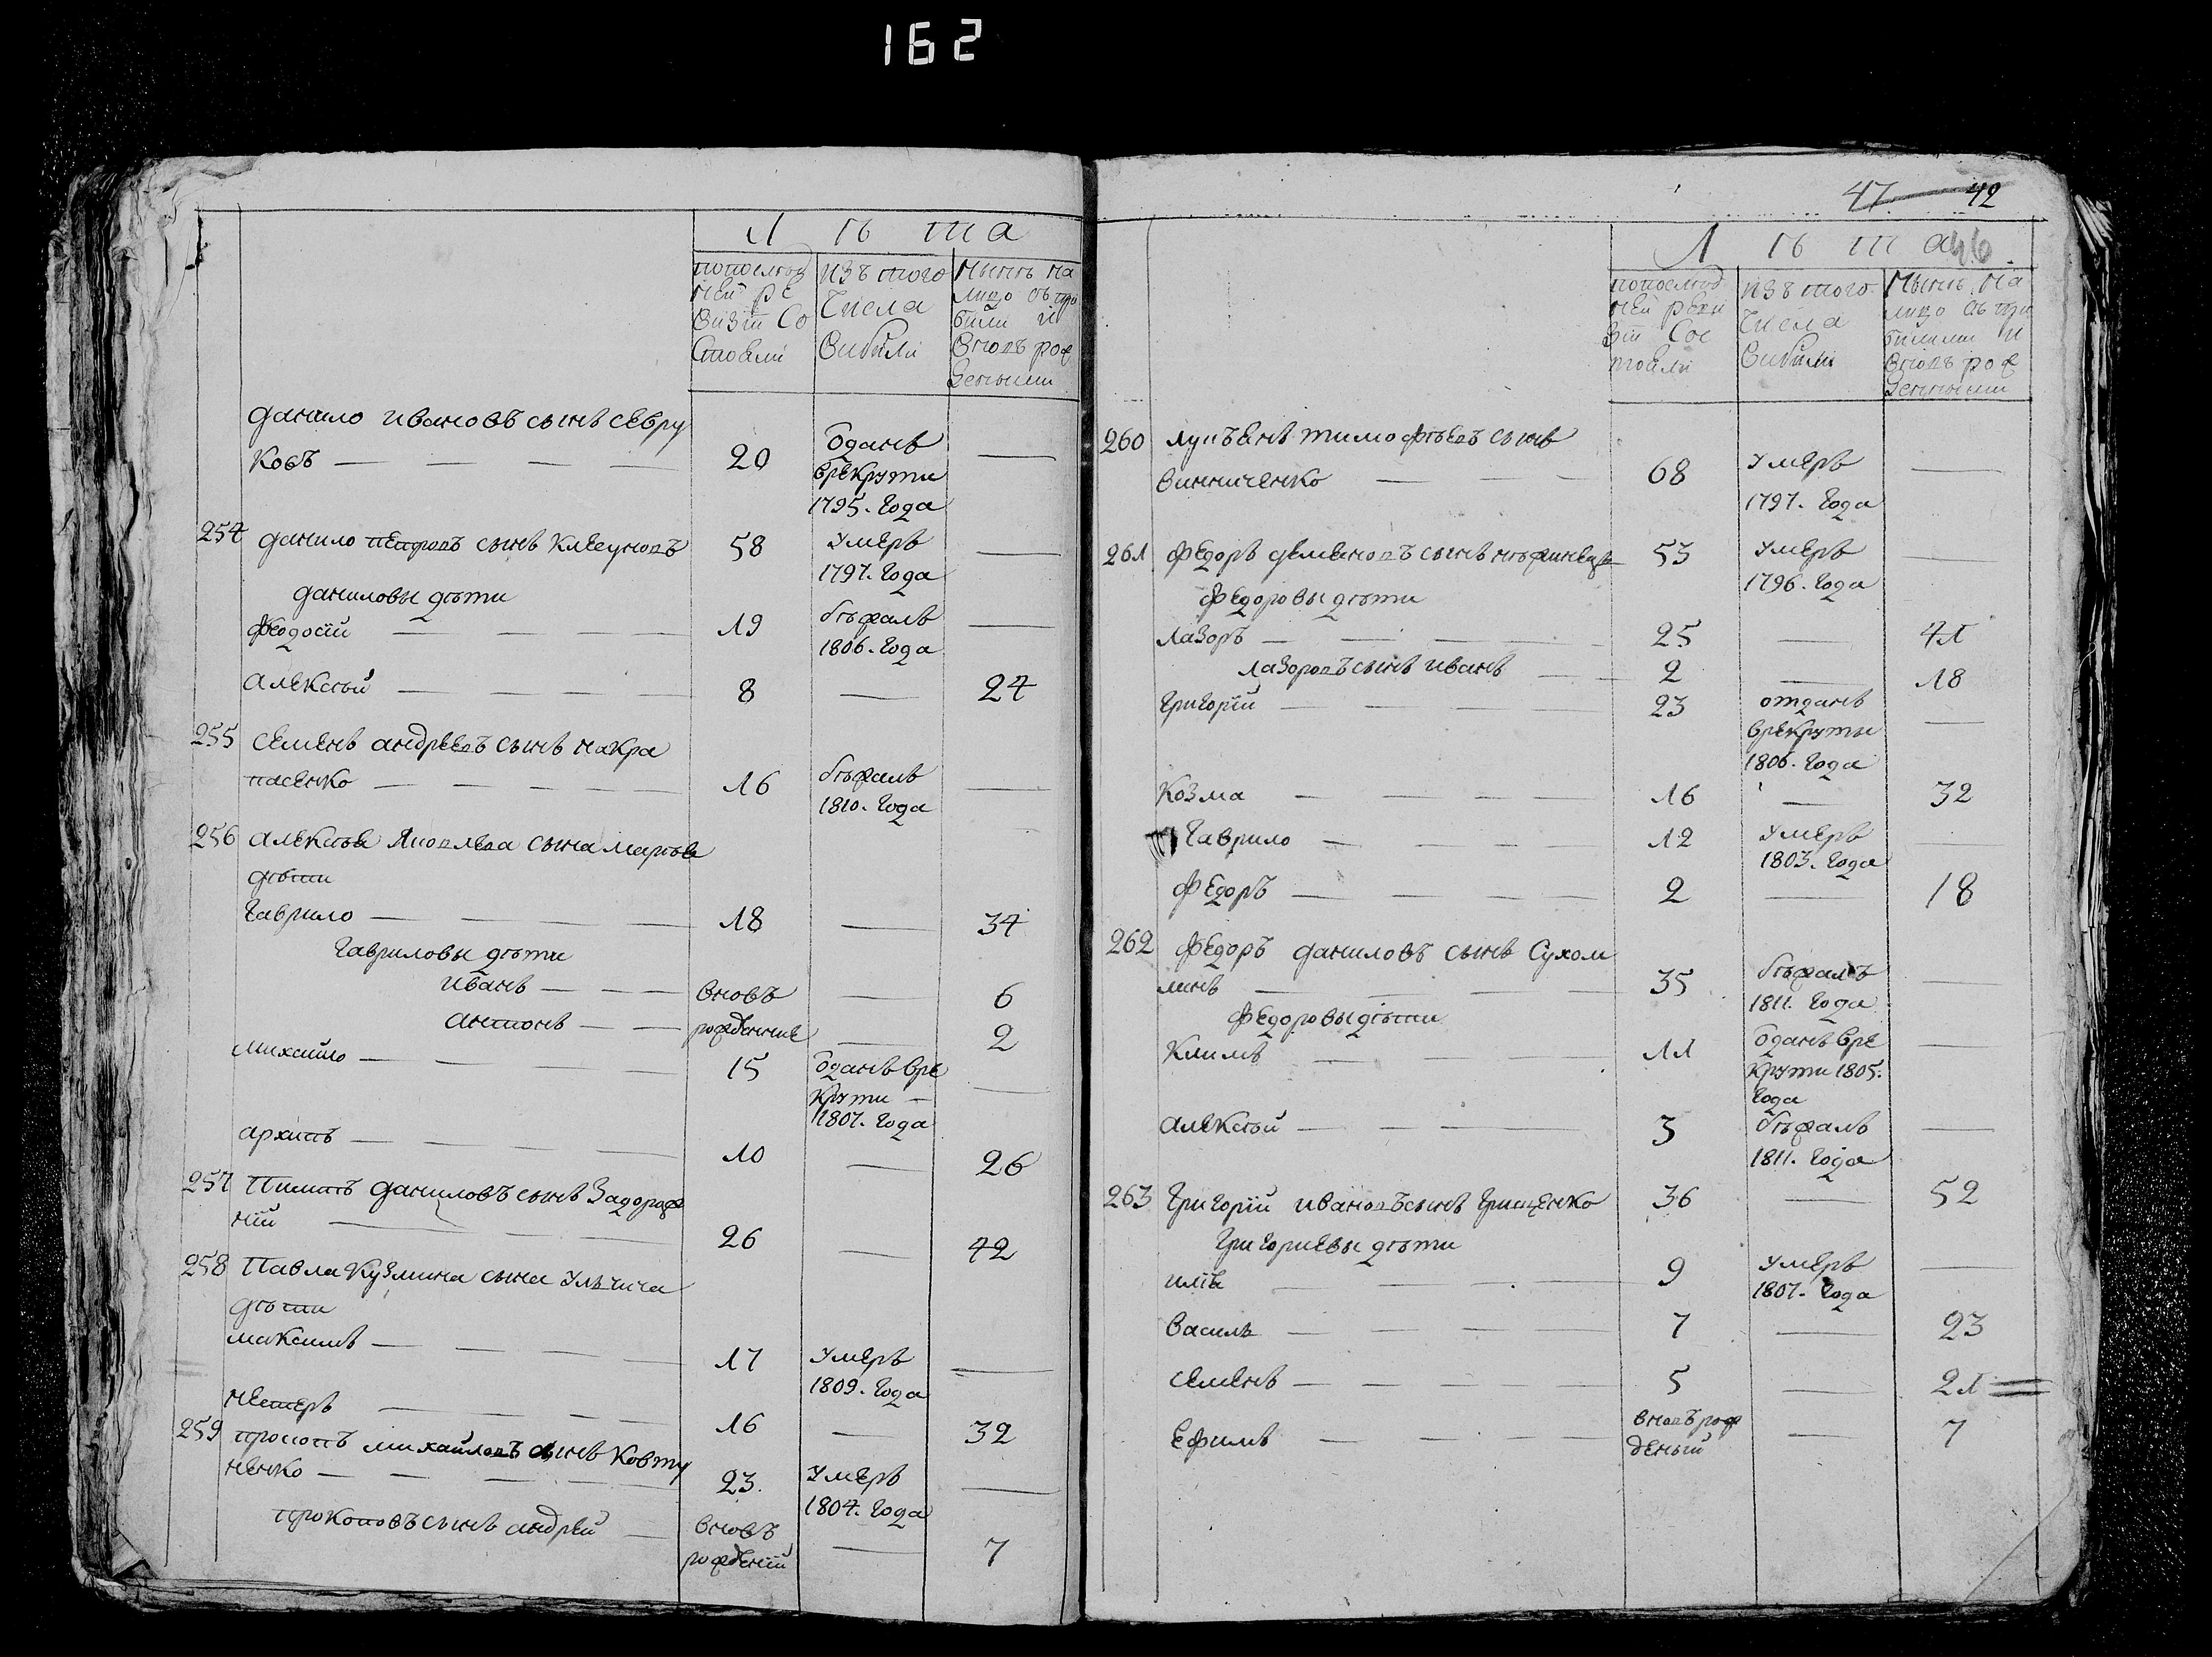 162
Лѣта
попослѣд
ней ре
визіи со
стояли
изъ того
числа
вибили
Нынѣ на
лицо съ при
били и
вновъ рож
денними
данило ивановъ сынъ севру
ковъ — 20 Оданъ —
врекрути
1795. Года
254 данило петровъ сынъ Клеуновъ 58 Умеръ —
1797. Года
даниловы дѣти
феодосій — 19 бѣжалъ —
1806. Года
Алексѣй — 8 — 24
255 семенъ андреевъ сынъ макра
пасенко — 16 бѣжалъ —
1810. Года
256 Алексѣя Яковлева сына
дѣти
Гаврило — 18 — 34
Гавриловы дѣти
иванъ — вновъ — 6
антонъ — рожденние — 2
михайло — 15 Оданъ вре —
крути —
1807. Года
архипъ — 10 — 26
257 Пилипъ даниловъ сынъ Задорож
ній — 26 — 42
258 Павла Кузмина сына Ульчича
дѣти
максимъ — 17 Умеръ —
1809. Года
нестеръ — 16 — 32
259 прокопъ михайловъ сынъ Ковту
ненко — 23. Умеръ —
1804. Года
прокоповъ сынъ андрей — вновъ — 7
рожденій
47 42
46
Лѣта
попослѣд
ней реви
зіи сос
тояли
изъ того
числа
вибили
Нынѣ на
лицо съ при
билими и
вновъ рож
денними
260 тимофѣевъ сынъ
винниченко — 68 Умеръ —
1797. Года
261 федоръ деменовъ сынъ нѣжинецъ 53 Умеръ —
1796. Года
федоровы дѣти
лазоръ — 25 — 41
лазоровъ сынъ иванъ — 2 — 18
Григорій — 23 отданъ —
врекруты
1806. Года
Козма — 16 — 32
Гаврило — 12 Умеръ
1803. Года
федоръ — 2 — 18
262 федоръ даниловъ сынъ Сухом
линъ — 35 бѣжалъ —
1811. Года
федоровы дѣти
Климъ — 11 Оданъ вре —
крути 1805.
Года
алексѣй — 3 бѣжалъ —
1811. Года
263 Григорій ивановъ сынъ Грищенко 36 — 52
Григориевы дѣти
илія — 9 Умеръ —
1807. Года
василь — 7 — 23
семенъ — 5 — 21
ефимъ — вновъ рож — 7
деный